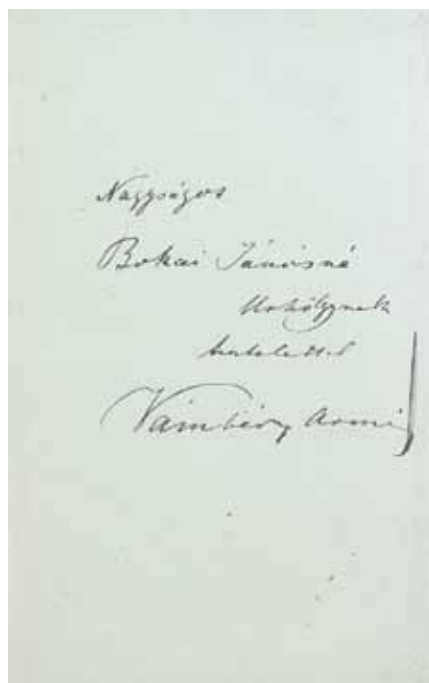 Nagyságos
Bokai Jánosné
Urhölgynek
tisztelettel
Vámbéry Armin